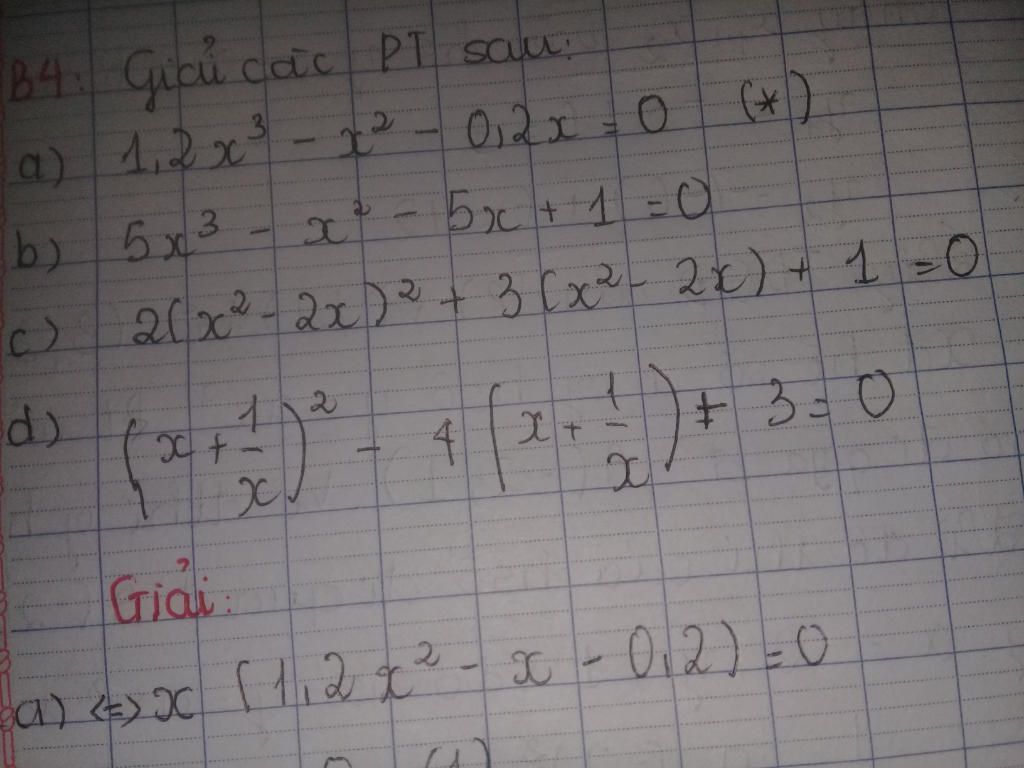 B4: Giải các PT sau:
a) 1,2x³ - x² - 0,2x = 0 (*)
b) 5x³ - x² - 5x + 1 = 0
c) 2(x² - 2x)² + 3(x² - 2x) + 1 = 0
d) (x + 1/x)² - 4(x + 1/x) + 3 = 0
Giải:
a) <=> x (1,2x² - x - 0,2) = 0